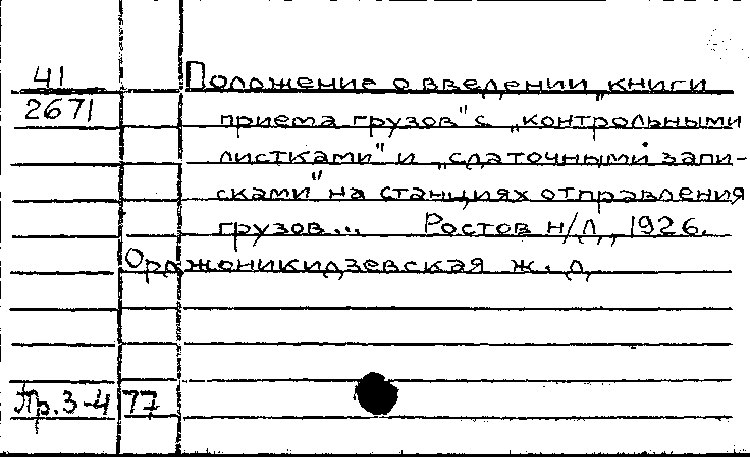 41
2671
Положение о введении „книги
приема грузов" с „контрольными
листками" и „сдаточными запи-
сками" на станциях отправления
грузов... Ростов н/Д, 1926.
Орджоникидзевская ж. д.
Пр. 3-4 77